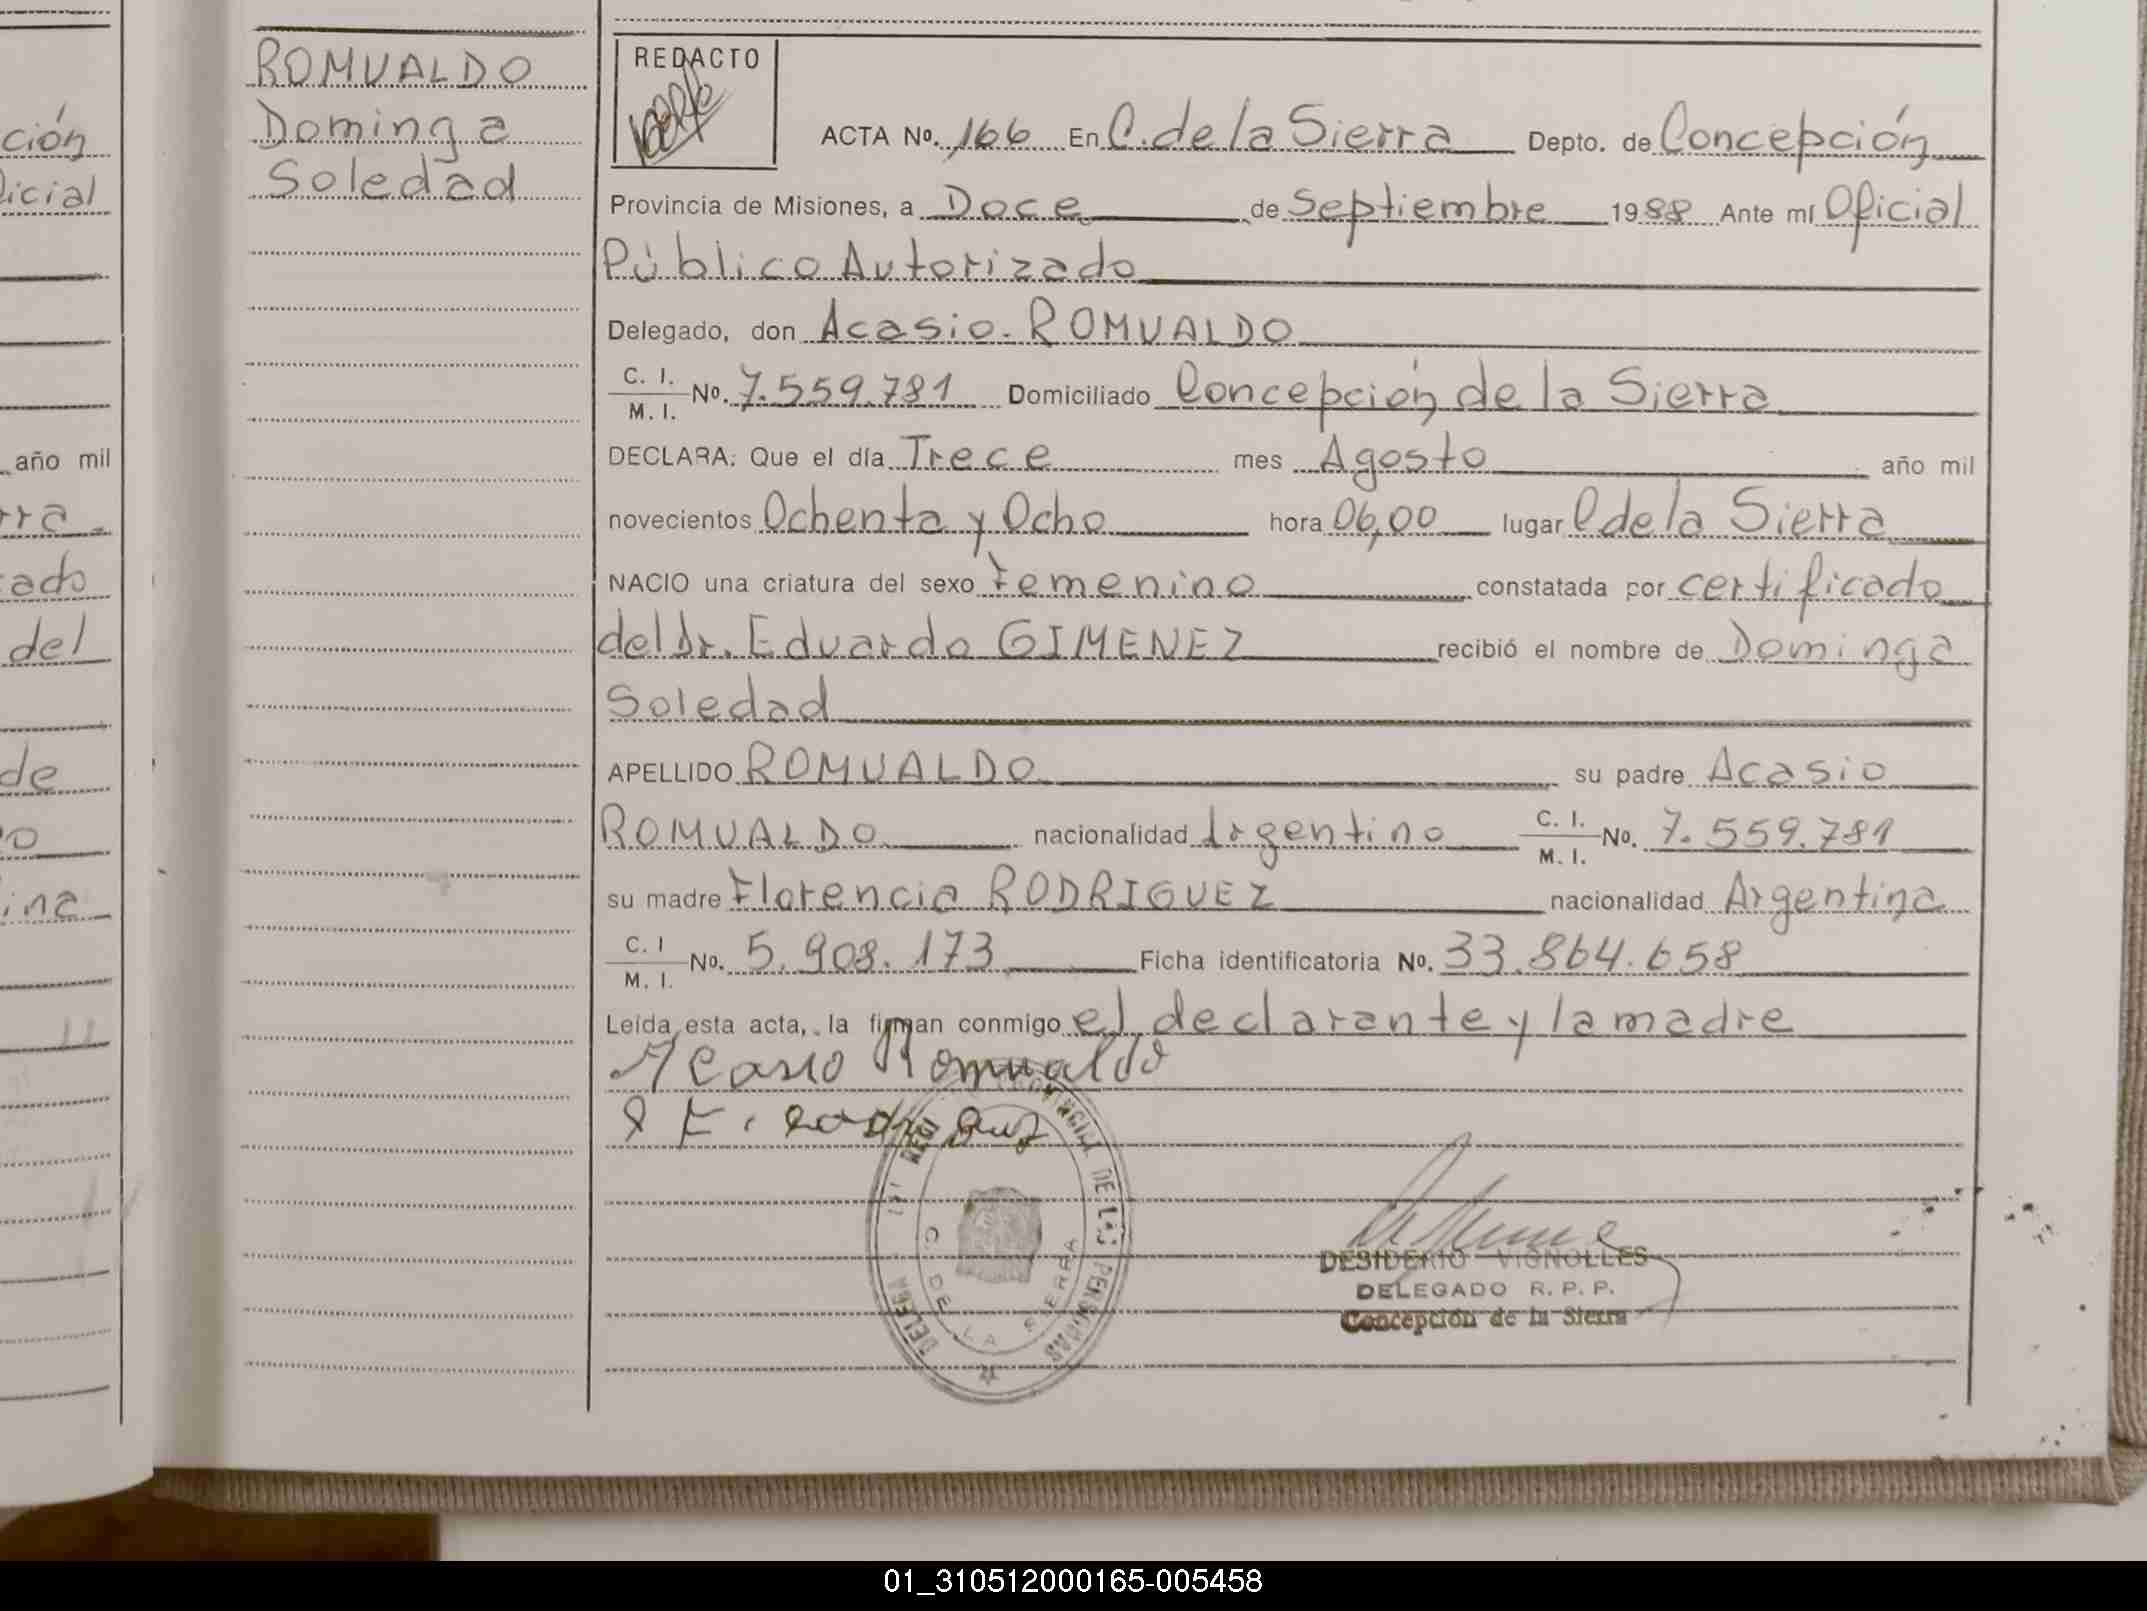 ROMUALDO
Dominga
Soledad
REDACTO
ACTA No. 166 En C. de la Sierra Depto. de Concepción
Provincia de Misiones, a Doce de Septiembre 1988 Ante mí Oficial
Público Autorizado
Delegado, don Acasio ROMUALDO
C. I. / M. I. No. 7.559.781 Domiciliado Concepción de la Sierra
DECLARA: Que el día Trece mes Agosto año mil
novecientos Ochenta y Ocho hora 06,00 lugar C. de la Sierra
NACIO una criatura del sexo Femenino constatada por certificado
del Dr. Eduardo GIMENEZ recibió el nombre de Dominga
Soledad
APELLIDO ROMUALDO su padre Acasio
ROMUALDO nacionalidad Argentino C. I. / M. I. No. 7.559.781
su madre Florencia RODRIGUEZ nacionalidad Argentina
C. I / M. I. No. 5.908.173 Ficha identificatoria No. 33.864.658
Leída esta acta, la firman conmigo el declarante y la madre
Acasio Romualdo
DE LAS PERSONAS
C. DE LA SIERRA
DESIDERIO VIGNOLLES
DELEGADO R. P. P.
Concepción de la Sierra
ción
icial
año mil
rra
ado
del
de
o
ina
01_310512000165-005458